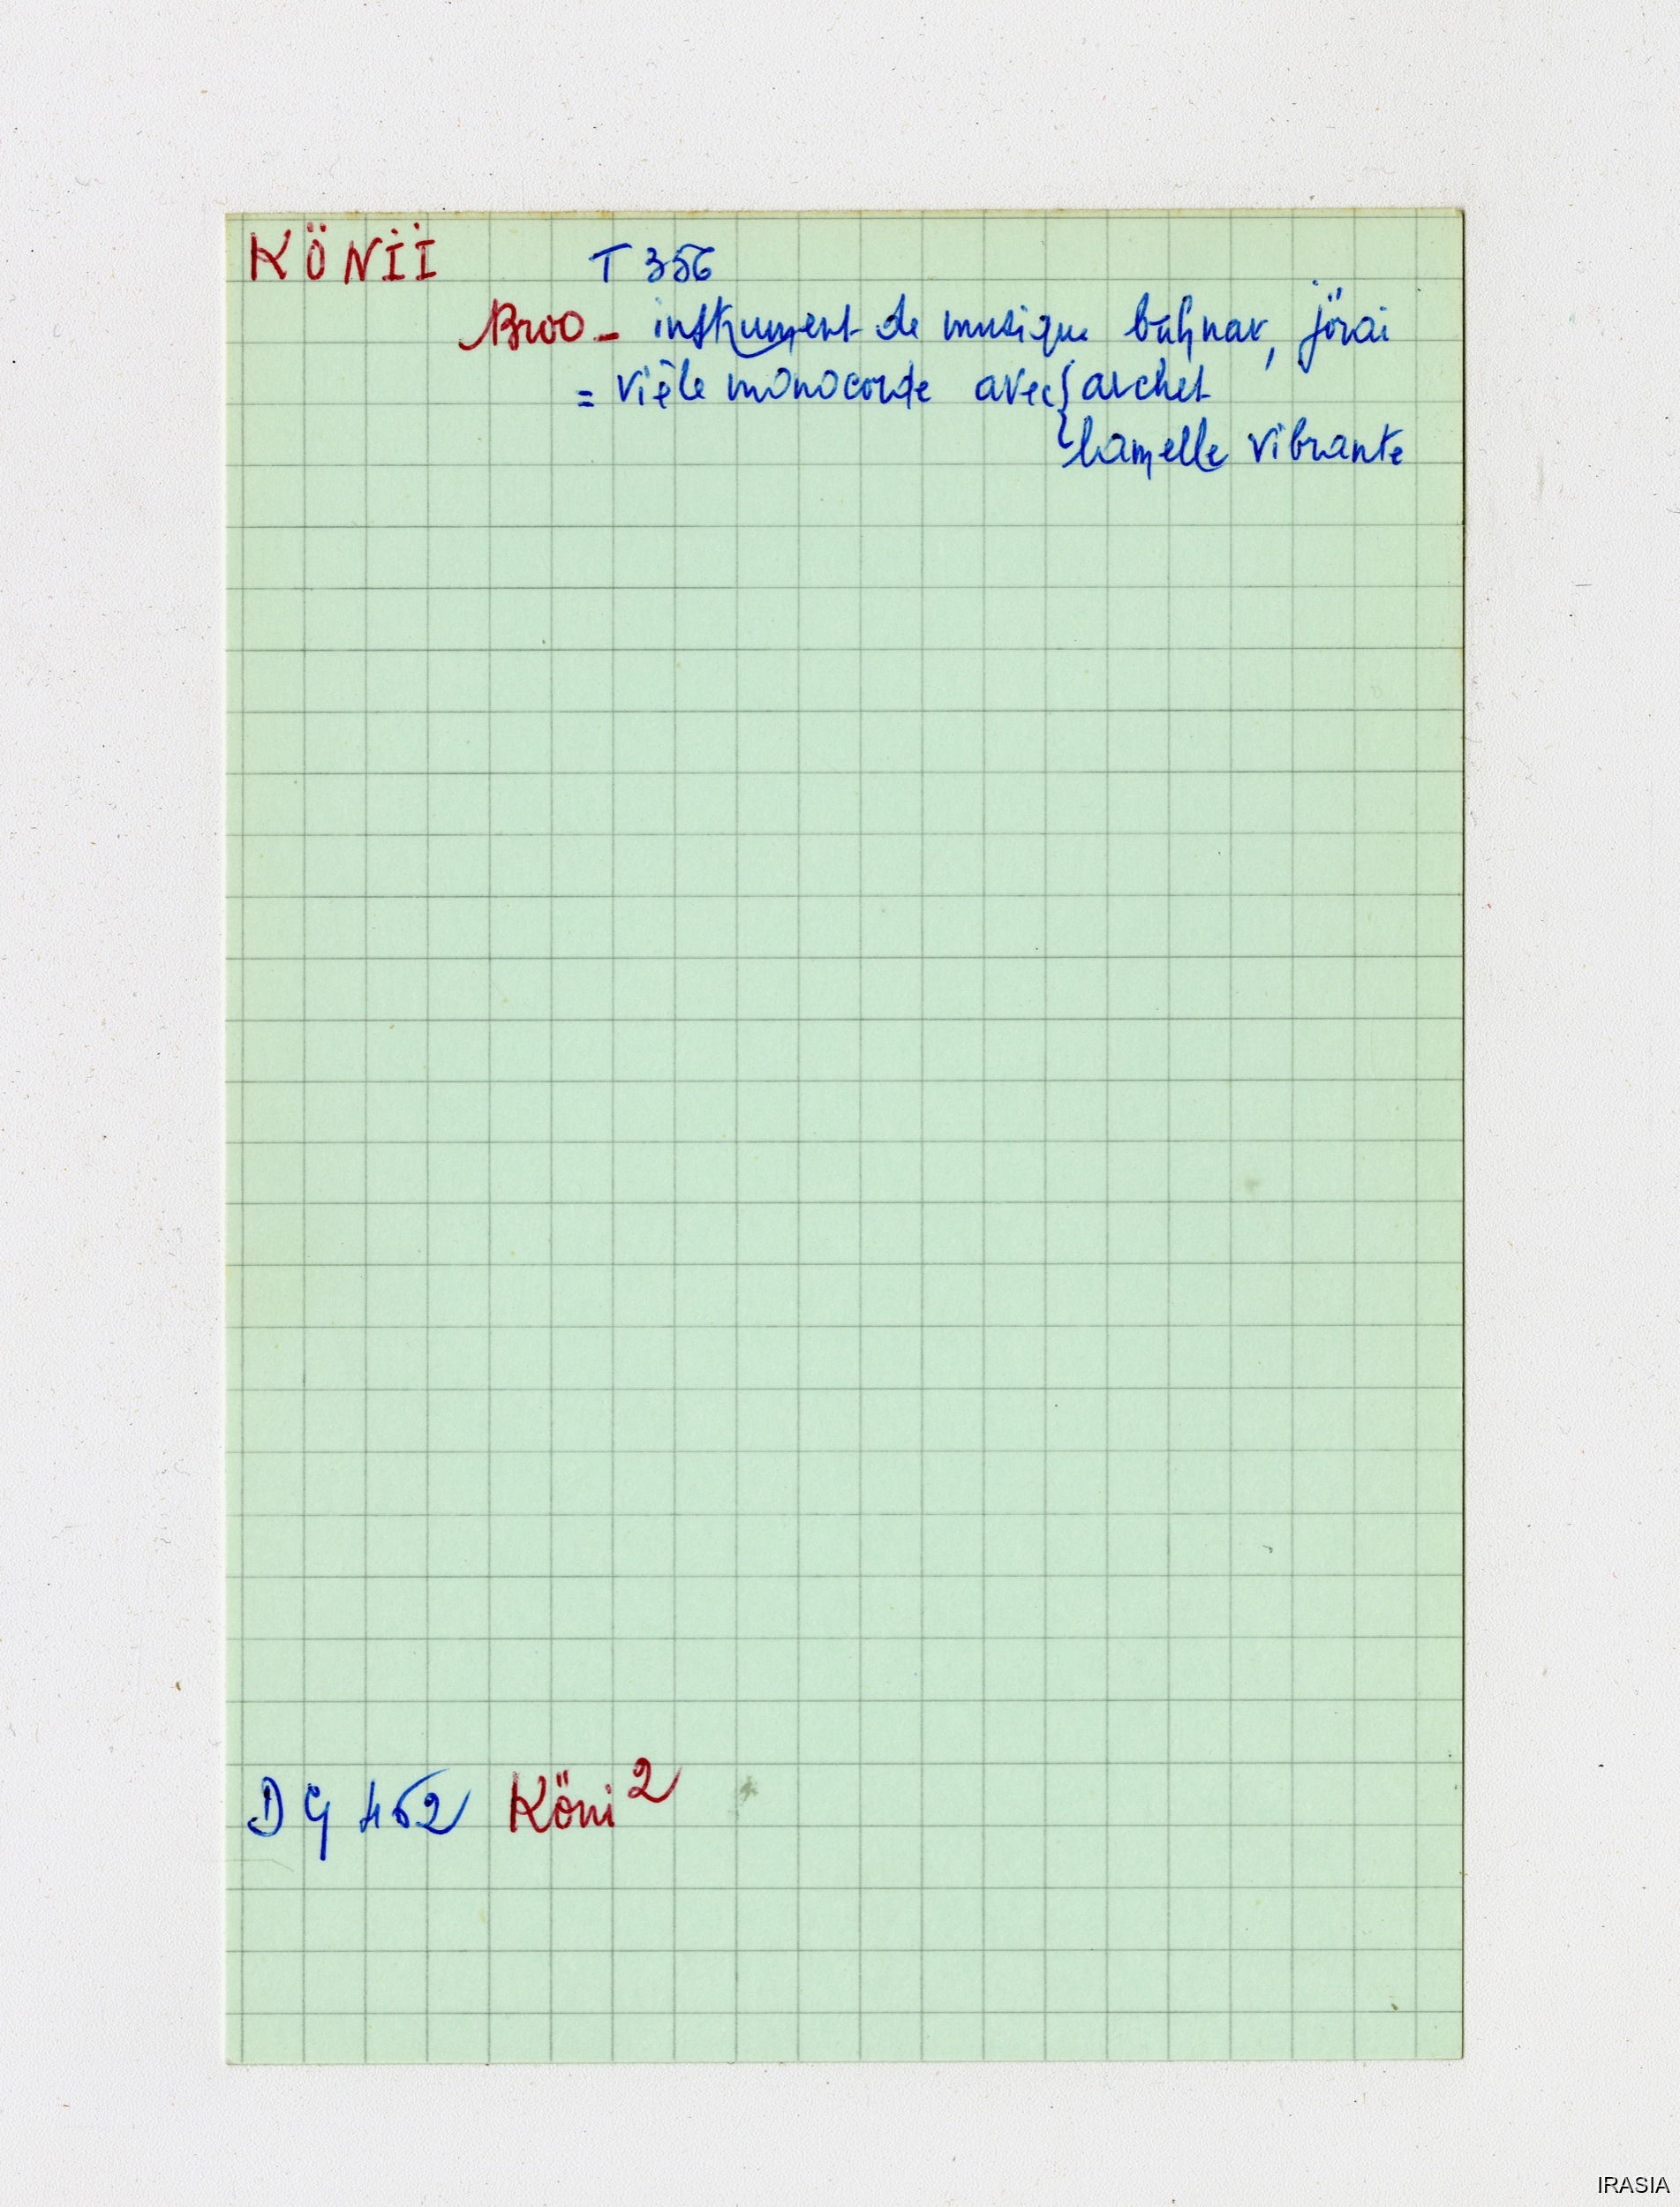 KÖNII T 356
Broo - instrument de musique bahnar, jörai
= vièle monocorde avec { archet
{ lamelle vibrante
DG 452 Köni 2
IRASIA